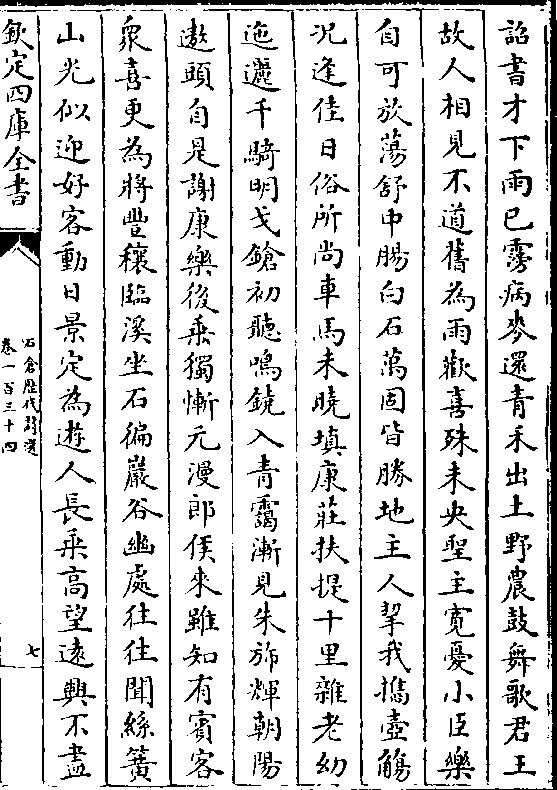 詔書才下雨已霶病麥還青禾出土野農鼓舞歌君王
故人相見不道舊為雨歡喜殊未央聖主寛憂小臣樂
自可放蕩舒中腸白石萬固皆勝地主人挈我攜壺觴
況逢佳日俗所尚車馬未曉塡康莊扶提十里雜老幼
迤邐千騎明戈鎗初聽鳴鐃入青靄漸見朱斾輝朝陽
遨頭自是謝康樂後乗獨慚元漫郎侯來雖知有賓客
衆喜更為將豐穰臨溪坐石徧巖谷幽處往往聞絲簧
山光似迎好客動日景定為遊人長乗高望遠興不盡
欽定四庫全書
石倉歷代詩選
卷一百三十四
七